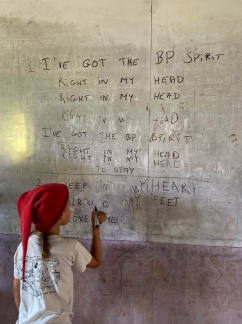 I'VE GOT THE BP SPIRIT
RIGHT IN MY HEAD
RIGHT IN MY HEAD
RIGHT IN MY HEAD
I'VE GOT THE BP SPIRIT
RIGHT IN MY HEAD
RIGHT IN MY HEAD
TO STAY
DEEP IN MY HEART
MY FEET